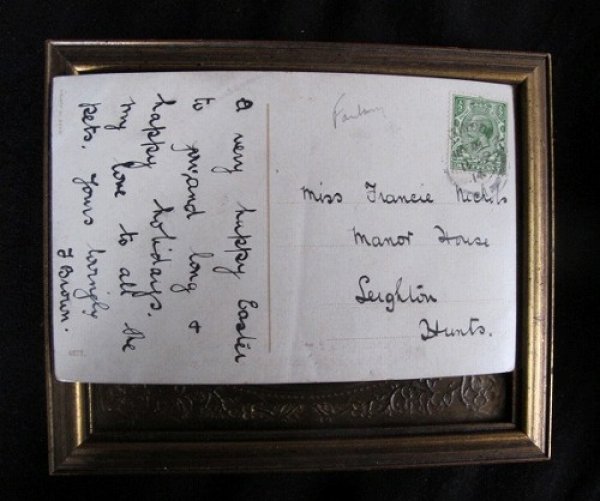 a very happy Easter
to you, and long &
happy holidays.
my love to all the
pets. Yours lovingly
F Brown.
Fantasy
Miss Francie Nichols
Manor House
Leighton
Hunts.